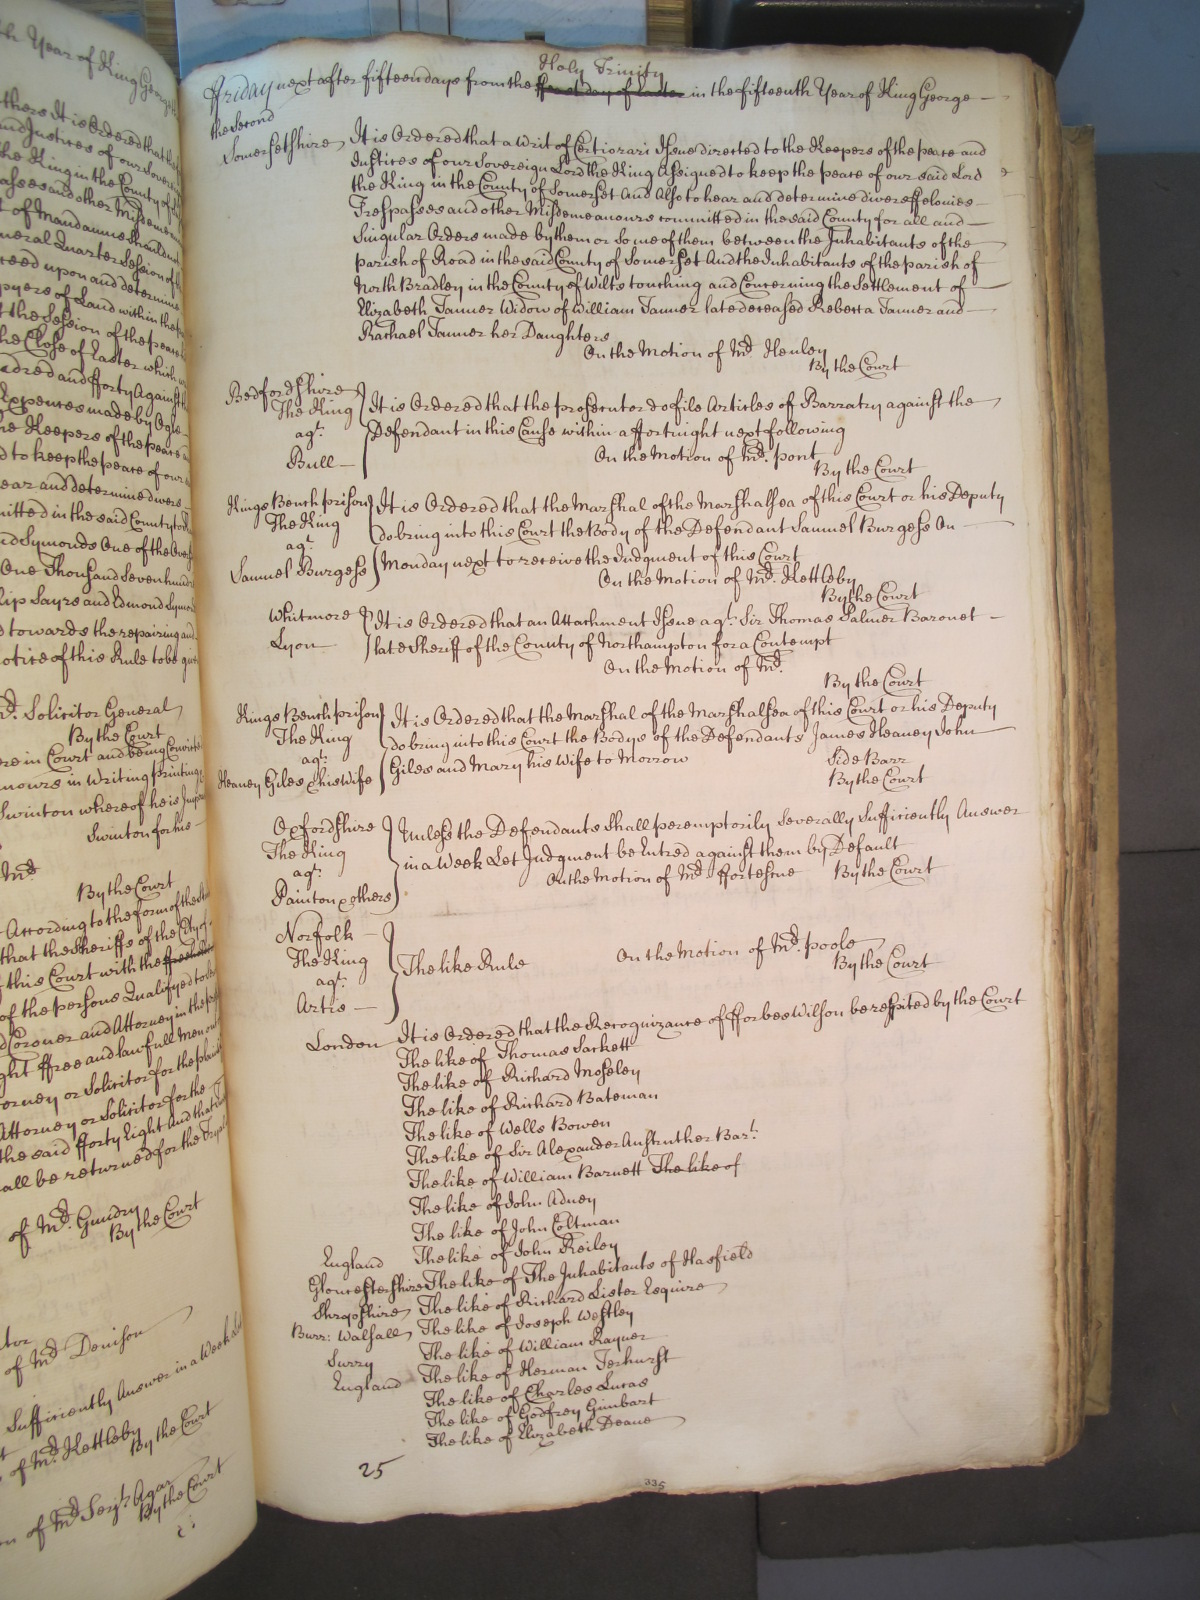 th Year of King George
thers It is Ordered that
and Justices of our Sovereign
the King in the County of
passes and other Misdemeanours
t of Mandamus should
neral Quarter Session of
reed upon and determine
pyers of Land within the
t the Session of the peace
the Close of Easter which
ndred and fforty Against
Expences made by Ogle
he Keepers of the peace
d to keep the peace of our
ear and determine divers
mitted in the said County
nd Symonds One of the
One Thousand Seven hundred
lip Sayre and Edmond Symonds
d towards the repairing and
otice of this Rule to be given
Mr. Solicitor General
By the Court
ere in Court and being Convicted
mours in Writing printing
Swinton whereof he is
Swinton for his
Mr
By the Court
According to the form of the
that the Sheriffs of the City of
f this Court with the
of the persons Qualifyed to
d Coroner and Attorney in the
ght ffree and lawfull Men
orney or Solicitor for the
Attorney or Solicitor for the
the said fforty Eight And that
all be returned for the Tryal
of Mr. Gundry
By the Court
of Mr Denison
Sufficiently Answer in a Week
of Mr. Kettleby
By the Court
on of Mr Serjt. Agar
By the Court
Holy Trinity
ffriday next after fifteen days from the ffirst day of Easter in the fifteenth Year of King George
the Second
Somersetshire It is Ordered that a Writ of Certiorari Issue directed to the Keepers of the peace and
Justices of our Sovereign Lord the King Assigned to keep the peace of our said Lord
the King in the County of Somerset And Also to hear and determine divers ffelonies
Trespasses and other Misdemeanours committed in the said County for all and
Singular Orders made by them or some of them between the Inhabitants of the
parish of Road in the said County of Somerset And the Inhabitants of the parish of
North Bradley in the County of Wilts touching and Concerning the Settlement of
Elizabeth Tanner Widow of William Tanner late deceased Rebecca Tanner and
Rachael Tanner her Daughters
On the Motion of Mr Henley
By the Court
Bedfordshire
The King It is Ordered that the prosecutor do file Articles of Barratry against the
agt. Defendant in this Cause within a ffortnight next following
Bull On the Motion of Mr. pont
By the Court
Kings Bench prison It is Ordered that the Marshal of the Marshalsea of this Court or his Deputy
The King do bring into this Court the Body of the Defendant Samuel Burgess On
agt.
Samuel Burgess Monday next to receive the Judgment of this Court
On the Motion of Mr. Kettleby
By the Court
Whitmore It is Ordered that an Attachment Issue agt. Sir Thomas Palmer Baronet
Lyon late Sheriff of the County of Northampton for a Contempt
On the Motion of Mr.
By the Court
Kings Bench prison It is Ordered that the Marshal of the Marshalsea of this Court or his Deputy
The King do bring into this Court the Bodys of the Defendants James Heaney John
agt.
Heaney Giles & his Wife Giles and Mary his Wife to Morrow Side Barr
By the Court
Oxfordshire Unless the Defendants shall peremptorily severally Sufficiently Answer
The King in a Week Let Judgment be Entred against them by Default
agt. On the Motion of Mr ffortescue By the Court
Painton & others
Norfolk
The King The like Rule On the Motion of Mr. poole
agt. By the Court
Artis
London It is Ordered that the Recognizance of fforbes Wilson be respited by the Court
The like of Thomas Sackett
The like of Richard Moseley
The like of Richard Bateman
The like of Wells Bowen
The like of Sir Alexander Anstruther Bart.
The like of William Barnett The like of
The like of John Adney
The like of John Coltman
England The like of John Reiley
Gloucestershire The like of The Inhabitants of Hasfield
Shropshire The like of Richard Lister Esquire
Burr: Walsall The like of Joseph Westley
Surry The like of William Rayner
England The like of Herman Terhurst
The like of Charles Lucas
The like of Godfrey Gimbart
The like of Elizabeth Deane
25
335